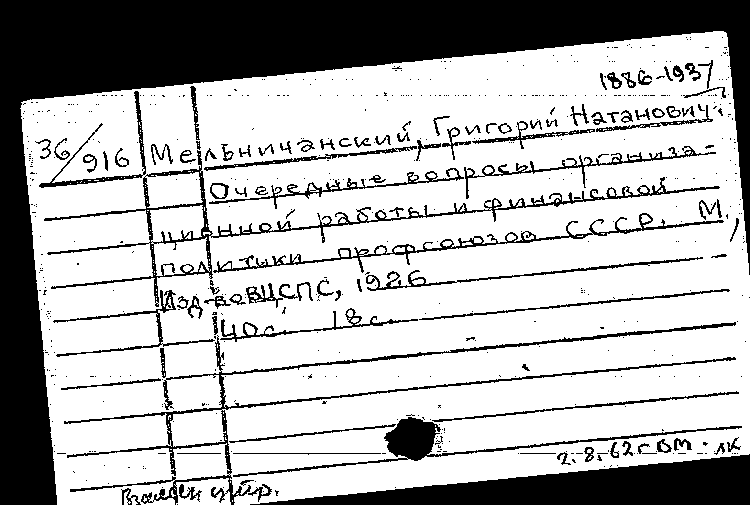 1886-1937
36/916 Мельничанский, Григорий Натанович.
Очередные вопросы организа=
ционной работы и финансовой
политики профсоюзов СССР. М.,
Изд-во ВЦСПС, 1926
40с. 18с.
2.8.62г